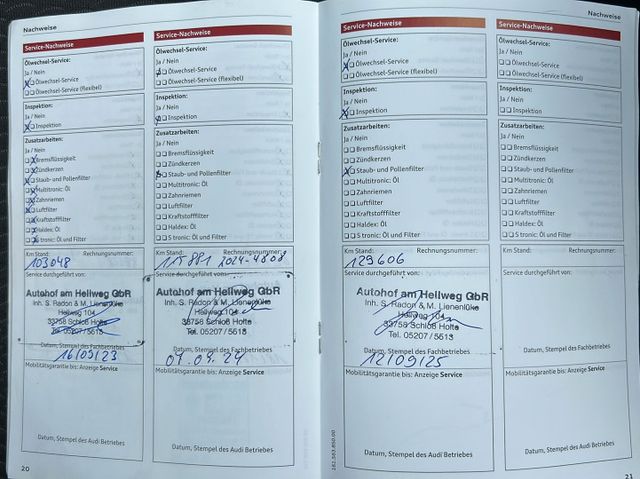 Nachweise
Service-Nachweise
Ölwechsel-Service:
Ja / Nein
Ölwechsel-Service
Ölwechsel-Service (flexibel)
Inspektion:
Ja / Nein
Inspektion
Zusatzarbeiten:
Ja / Nein
Bremsflüssigkeit
Zündkerzen
Staub- und Pollenfilter
Multitronic: Öl
Zahnriemen
Luftfilter
Kraftstofffilter
Haldex: Öl
S tronic: Öl und Filter
Km Stand: Rechnungsnummer:
103048
Service durchgeführt von:
Autohof am Hellweg GbR
Inh. S. Radon & M. Lienenlüke
Hellweg 104
33758 Schloß Holte
Tel. 05207 / 5613
Datum, Stempel des Fachbetriebes
16/09/23
Mobilitätsgarantie bis: Anzeige Service
Datum, Stempel des Audi Betriebes
20
Service-Nachweise
Ölwechsel-Service:
Ja / Nein
Ölwechsel-Service
Ölwechsel-Service (flexibel)
Inspektion:
Ja / Nein
Inspektion
Zusatzarbeiten:
Ja / Nein
Bremsflüssigkeit
Zündkerzen
Staub- und Pollenfilter
Multitronic: Öl
Zahnriemen
Luftfilter
Kraftstofffilter
Haldex: Öl
S tronic: Öl und Filter
Km Stand: Rechnungsnummer:
115881 2024-4808
Service durchgeführt von:
Autohof am Hellweg GbR
Inh. S. Radon & M. Lienenlüke
Hellweg 104
33758 Schloß Holte
Tel. 05207 / 5613
Datum, Stempel des Fachbetriebes
Mobilitätsgarantie bis: Anzeige Service
Datum, Stempel des Audi Betriebes
Nachweise
Service-Nachweise
Ölwechsel-Service:
Ja / Nein
Ölwechsel-Service
Ölwechsel-Service (flexibel)
Inspektion:
Ja / Nein
Inspektion
Zusatzarbeiten:
Ja / Nein
Bremsflüssigkeit
Zündkerzen
Staub- und Pollenfilter
Multitronic: Öl
Zahnriemen
Luftfilter
Kraftstofffilter
Haldex: Öl
S tronic: Öl und Filter
Km Stand: Rechnungsnummer:
129606
Service durchgeführt von:
Autohof am Hellweg GbR
Inh. S. Radon & M. Lienenlüke
Hellweg 104
33758 Schloß Holte
Tel. 05207 / 5613
Datum, Stempel des Fachbetriebes
12/09/25
Mobilitätsgarantie bis: Anzeige Service
Datum, Stempel des Audi Betriebes
Service-Nachweise
Ölwechsel-Service:
Ja / Nein
Ölwechsel-Service
Ölwechsel-Service (flexibel)
Inspektion:
Ja / Nein
Inspektion
Zusatzarbeiten:
Ja / Nein
Bremsflüssigkeit
Zündkerzen
Staub- und Pollenfilter
Multitronic: Öl
Zahnriemen
Luftfilter
Kraftstofffilter
Haldex: Öl
S tronic: Öl und Filter
Km Stand: Rechnungsnummer:
Service durchgeführt von:
Datum, Stempel des Fachbetriebes
Mobilitätsgarantie bis: Anzeige Service
Datum, Stempel des Audi Betriebes
21